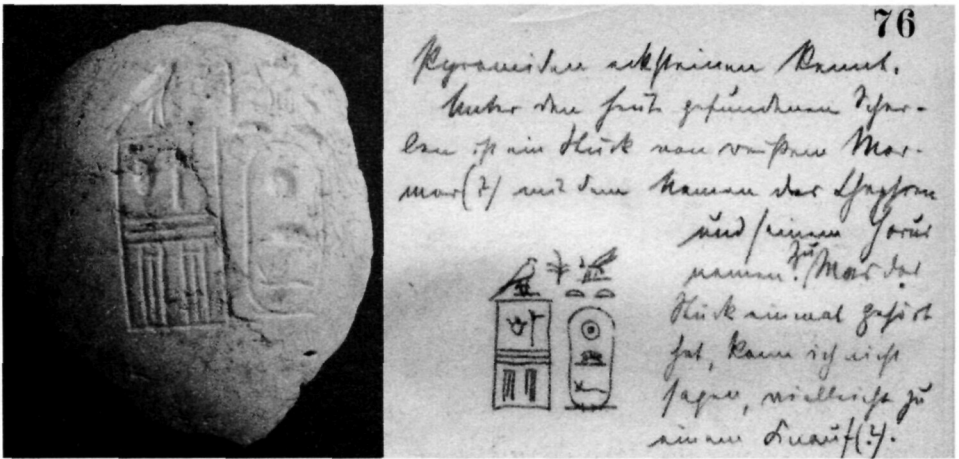 76
Pyramiden ecksteinen kennt.
Unter den heute gefundenen Scher-
ben ist ein Stück von weißem Mar-
mor(?) mit dem Namen des Chephren
und seinem Horus
namen. Zu Was das
Stück einmal gehört
hat, kann ich nicht
sagen, vielleicht zu
einem Knauf(?).